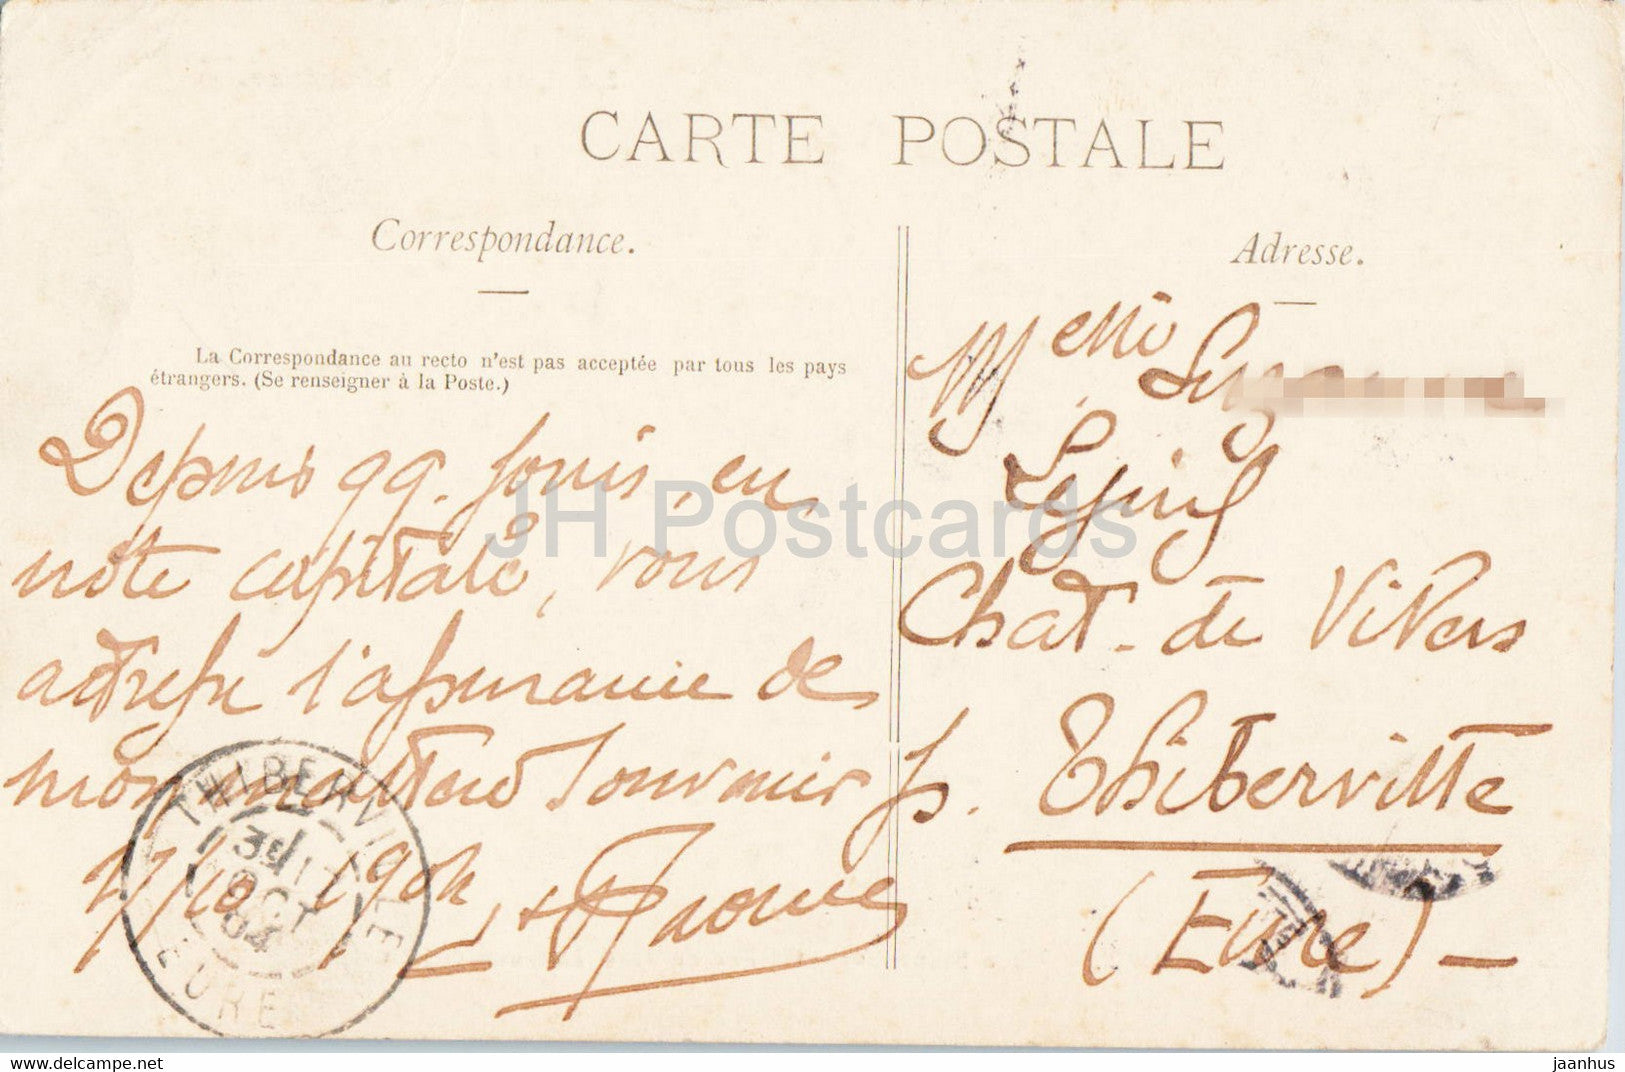 CARTE POSTALE
Correspondance.
La Correspondance au recto n'est pas acceptée par tous les pays
étrangers. (Se renseigner à la Poste.)
Depuis qq. jours, en
notre capitale, vous
adresse l'assurance de
mon meilleur souvenir
1904
Adresse.
Melle
Chat. de Vivers
p. Thiberville
(Eure) —
THIBERVILLE
OCT
04
EURE
JH Postcards
www.delcampe.net
jaanhus